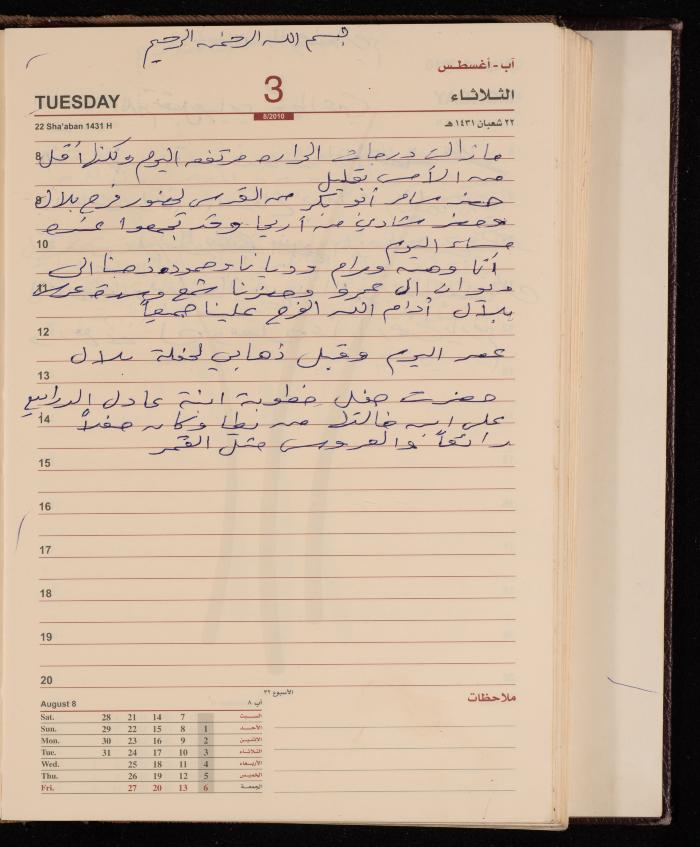 بسم الله الرحمن الرحيم
آب - أغسطس
TUESDAY
3
8/2010
الثلاثاء
22 Sha'aban 1431 H
٢٢ شعبان ١٤٣١ هـ
8 ما زالت درجات الحراره مرتفعه اليوم ولكنها أقل
من الأمس بقليل
9 حضر سامر أبو بكر من القدس لحضور فرح بلال
وحضر شادي من أريحا وقد تجمعوا عنده
10 مساء اليوم
أنا و ورام وديانا وحموده ذهبنا الى
11 ديوان ال عمرو وحضرنا سهرة
بلال أدام الله الفرح علينا جميعاً
12
عصر اليوم وقبل ذهابي لحفلة بلال
13
حضرت حفل خطوبة ابنة عادل
14 على ابن خالتها من يطا وكان حفلاً
رائعاً والعروس مثل القمر
15
16
17
18
19
20
الأسبوع ٣٢
ملاحظات
August 8
آب ٨
Sat. 28 21 14 7 السبت
Sun. 29 22 15 8 1 الأحد
Mon. 30 23 16 9 2 الاثنين
Tue. 31 24 17 10 3 الثلاثاء
Wed. 25 18 11 4 الأربعاء
Thu. 26 19 12 5 الخميس
Fri. 27 20 13 6 الجمعة